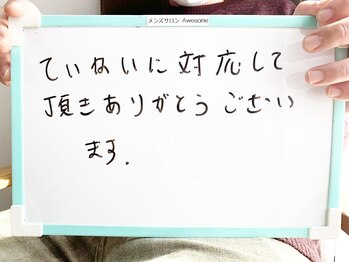 メンズサロン Awesome
ていねいに対応して
頂きありがとうござい
ます.